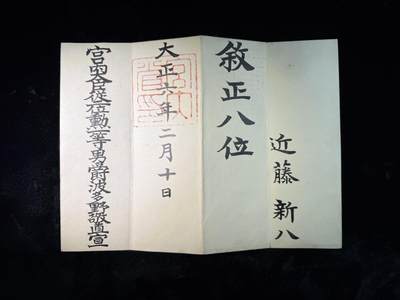 近藤新八
敘正八位
大正六年二月十日
宮內大臣從二位勳一等男爵波多野敬直宣